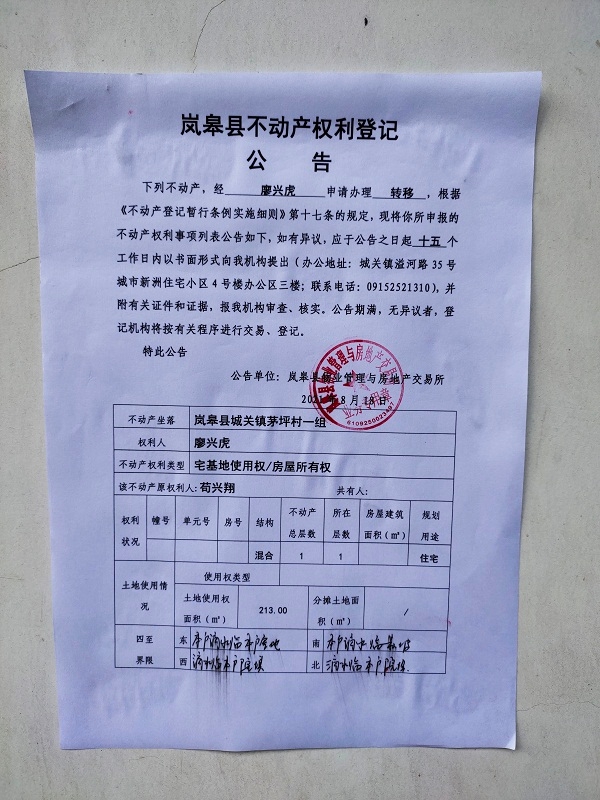 岚皋县不动产权利登记
公 告
下列不动产，经 廖兴虎 申请办理 转移 ，根据
《不动产登记暂行条例实施细则》第十七条的规定，现将你所申报的
不动产权利事项列表公告如下，如有异议，应于公告之日起 十五 个
工作日内以书面形式向我机构提出（办公地址：城关镇溢河路 35 号
城市新洲住宅小区 4 号楼办公区三楼；联系电话：09152521310），并
附有关证件和证据，报我机构审查、核实。公告期满，无异议者，登
记机构将按有关程序进行交易、登记。
特此公告
公告单位：岚皋县物业管理与房地产交易所
8 月 18 日
业务专用章
不动产坐落 岚皋县城关镇茅坪村一组
权利人 廖兴虎
不动产权利类型 宅基地使用权/房屋所有权
该不动产原权利人：荀兴翔 共有人：
权利状况 幢号 单元号 房号 结构 不动产总层数 所在层数 房屋建筑面积（㎡） 规划用途
混合 1 1 住宅
土地使用情况 使用权类型
土地使用权面积（㎡） 213.00 分摊土地面积（㎡） /
四至界限 东 本户滴水临本户 地 南 本户滴水临
西 滴水临本户院坝 北 滴水临本户院坝